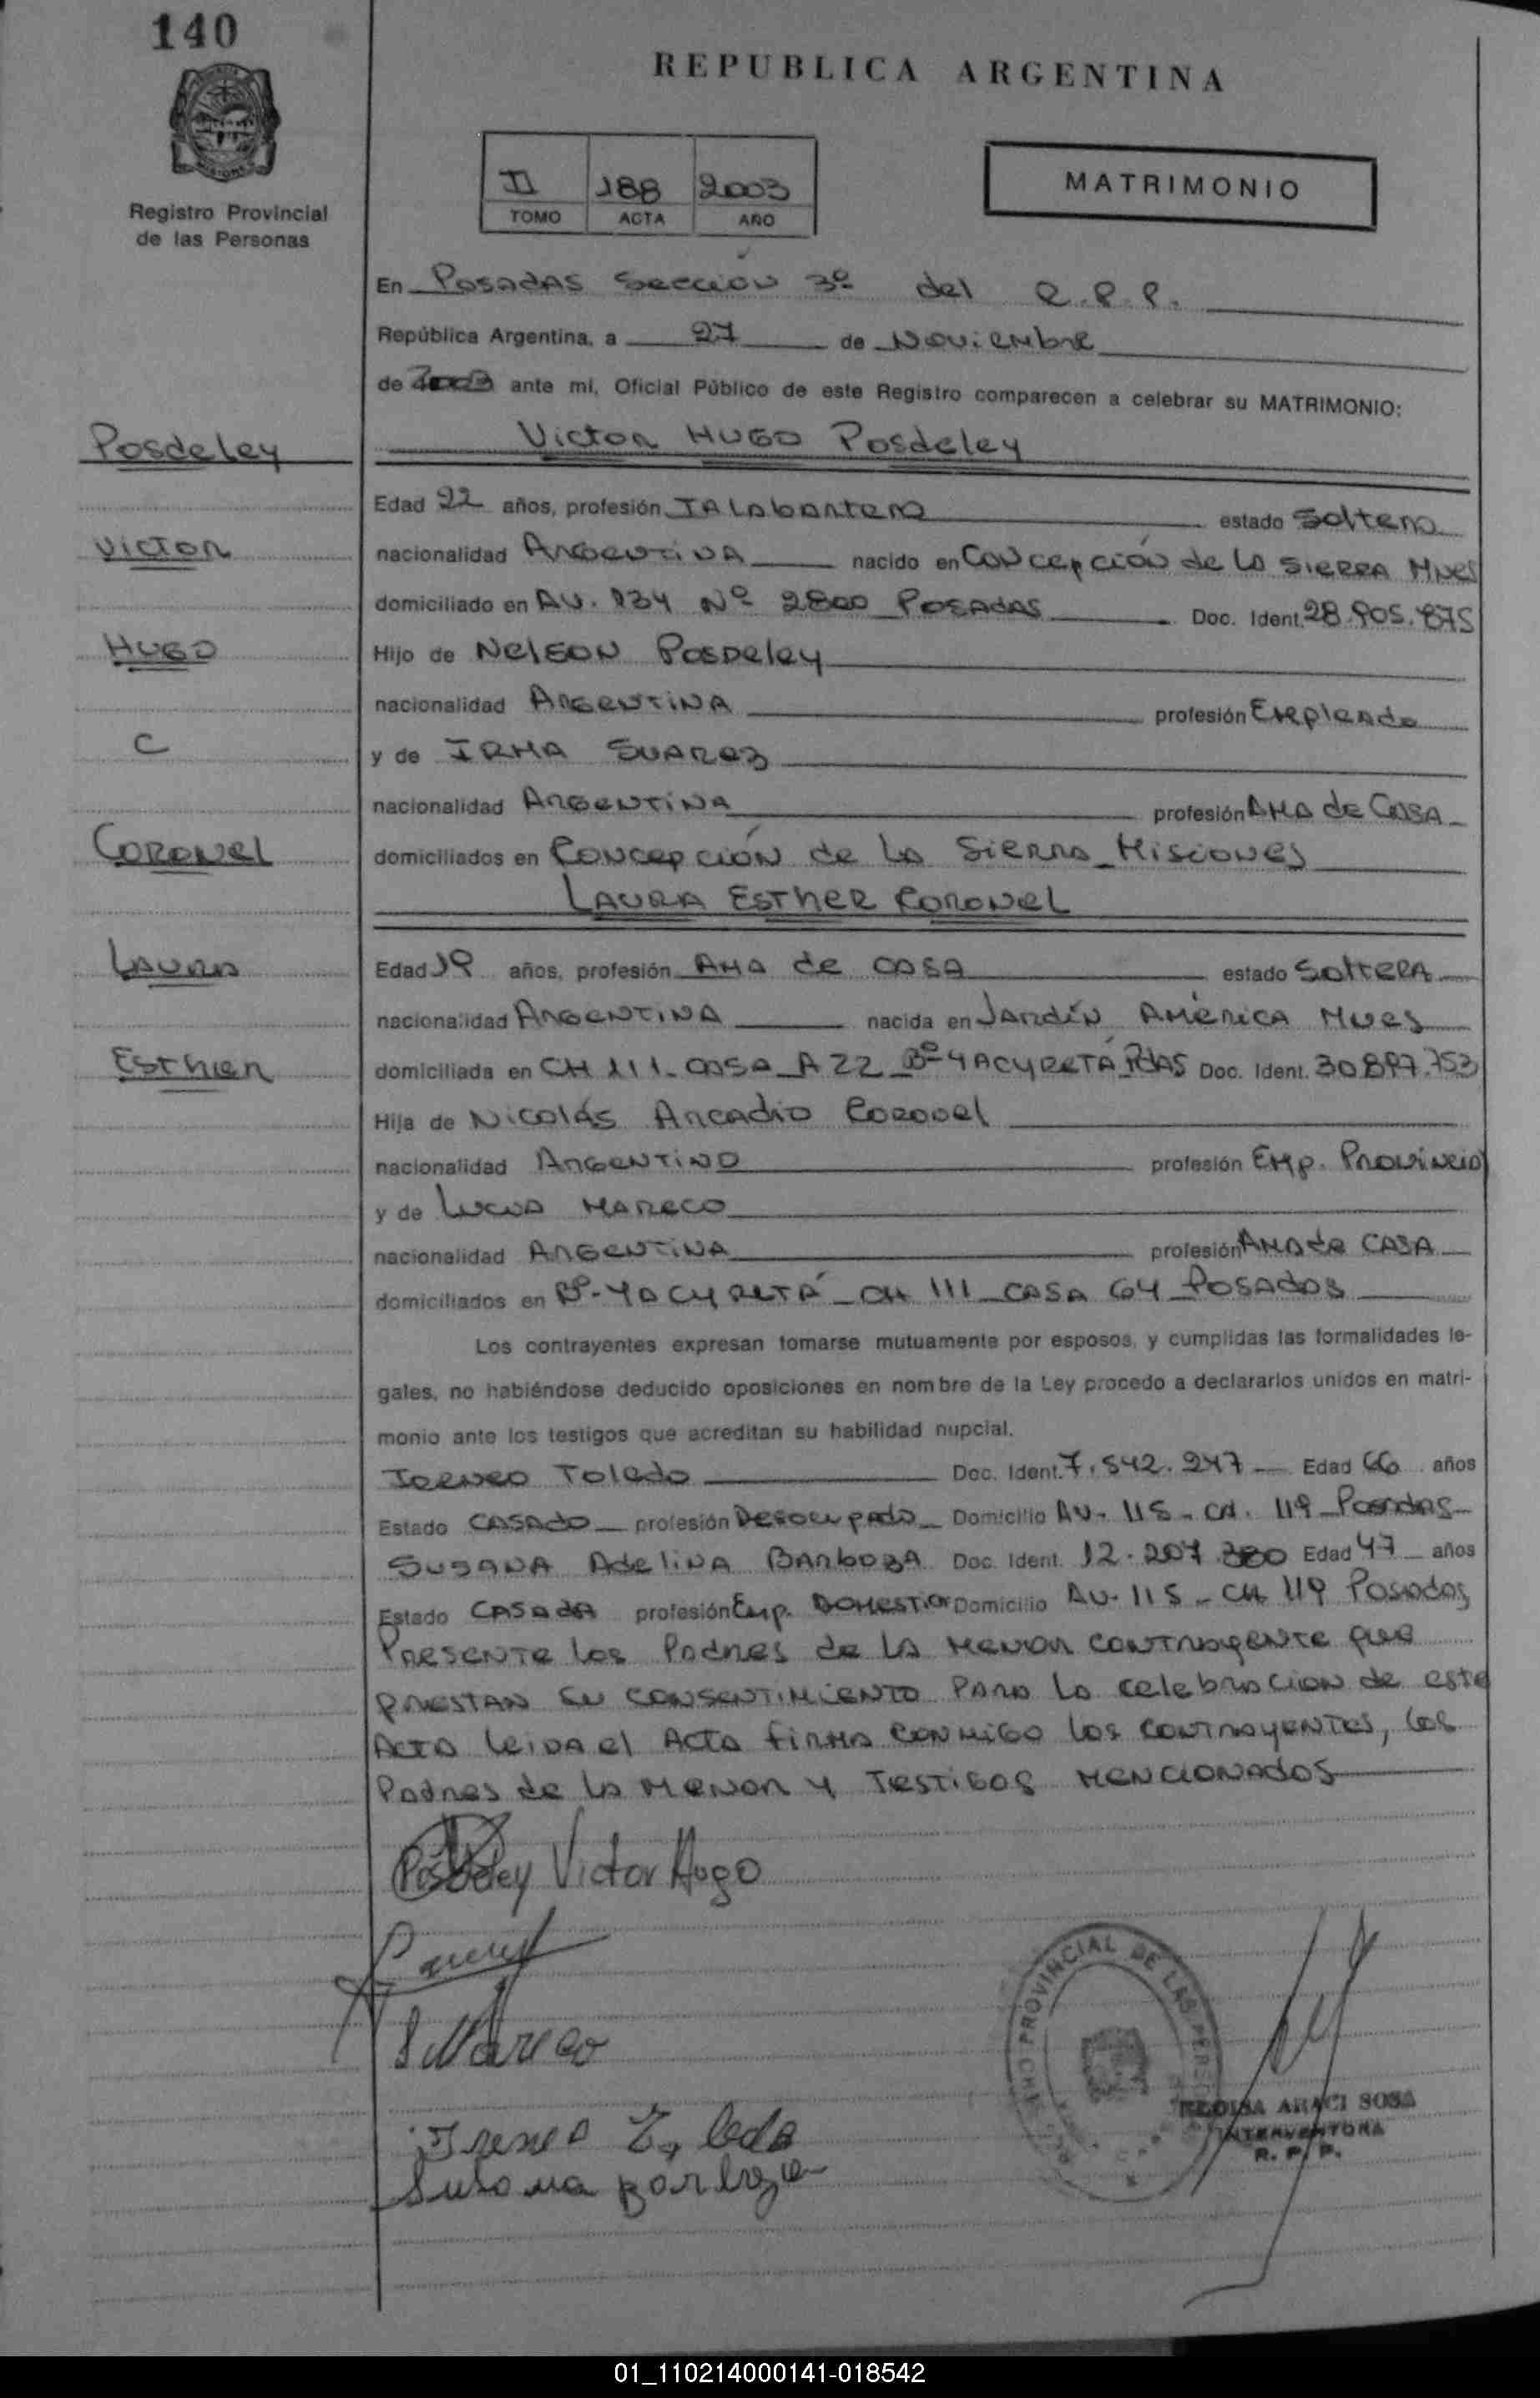 140
REPUBLICA ARGENTINA
Registro Provincial
de las Personas
II 188 2003
TOMO ACTA AÑO
MATRIMONIO
En Posadas Sección 3º del R.P.P.
República Argentina, a 27 de Noviembre
de 2003 ante mí, Oficial Público de este Registro comparecen a celebrar su MATRIMONIO:
Posdeley
Victor Hugo Posdeley
Edad 22 años, profesión Talabartero estado Soltero
Victor
nacionalidad Argentina nacido en Concepción de la Sierra Mnes
domiciliado en Av. 134 Nº 2800 Posadas Doc. Ident. 28.905.875
Hugo
Hijo de Nelson Posdeley
nacionalidad Argentina profesión Empleado
C
y de Irma Suarez
nacionalidad Argentina profesión Ama de Casa
Coronel
domiciliados en Concepción de la Sierra Misiones
Laura Esther Coronel
Laura
Edad 19 años, profesión Ama de Casa estado Soltera
nacionalidad Argentina nacida en Jardín América Mnes
Esther
domiciliada en CH 111 - Casa A 22 Bº Yacyretá Pdas Doc. Ident. 30.897.753
Hija de Nicolás Arcadio Coronel
nacionalidad Argentino profesión Emp. Provincial
y de Lucia Mareco
nacionalidad Argentina profesión Ama de Casa
domiciliados en Bº - Yacyretá - CH 111 - Casa 64 - Posadas
Los contrayentes expresan tomarse mutuamente por esposos, y cumplidas las formalidades le-
gales, no habiéndose deducido oposiciones en nombre de la Ley procedo a declararlos unidos en matri-
monio ante los testigos que acreditan su habilidad nupcial.
Ireneo Toledo Doc. Ident. 7.542.247 Edad 66 años
Estado Casado profesión Desocupado Domicilio Av. 115 - CH. 119 - Posadas
Susana Adelina Barboza Doc. Ident. 12.207.380 Edad 47 años
Estado Casada profesión Emp. Domestica Domicilio Av. 115 - CH 119 Posadas
Presente los Padres de la Menor contrayente que
prestan su consentimiento para la celebracion de este
Acto leida el Acta firma conmigo los contrayentes, los
Padres de la Menor y Testigos mencionados
Posdeley Victor Hugo
Mareco
Ireneo Toledo
Susana Barboza
PROVINCIAL DE LAS PERS
ARACI SOSA
INTERVENTORA
R. P. P.
01_110214000141-018542